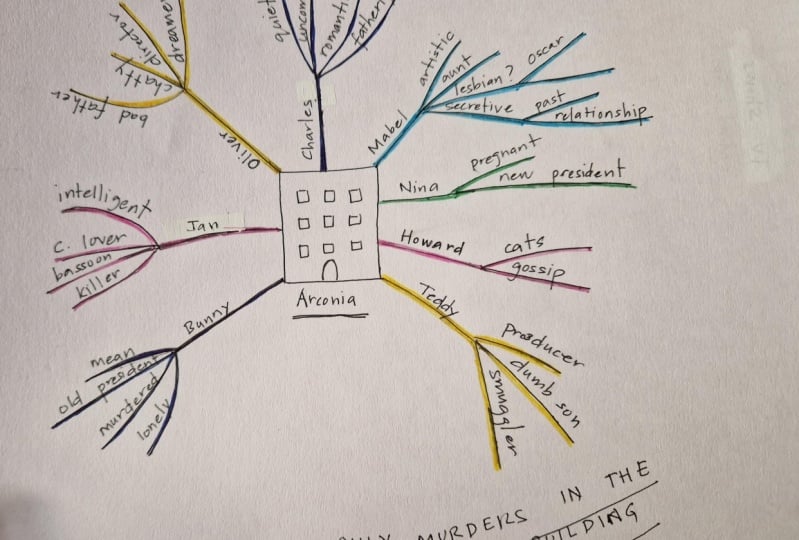 dreamer
director
chatty
bad father
Oliver
quiet
uncom
romanti
father
Charles
artistic
aunt
lesbian?
oscar
secretive
past
relationship
Mabel
pregnant
new president
Nina
Howard
cats
gossip
Teddy
producer
dumb son
smuggler
intelligent
c. lover
bassoon
killer
Jan
Bunny
mean
old president
murdered
lonely
Arconia
MURDERS IN THE
BUILDING